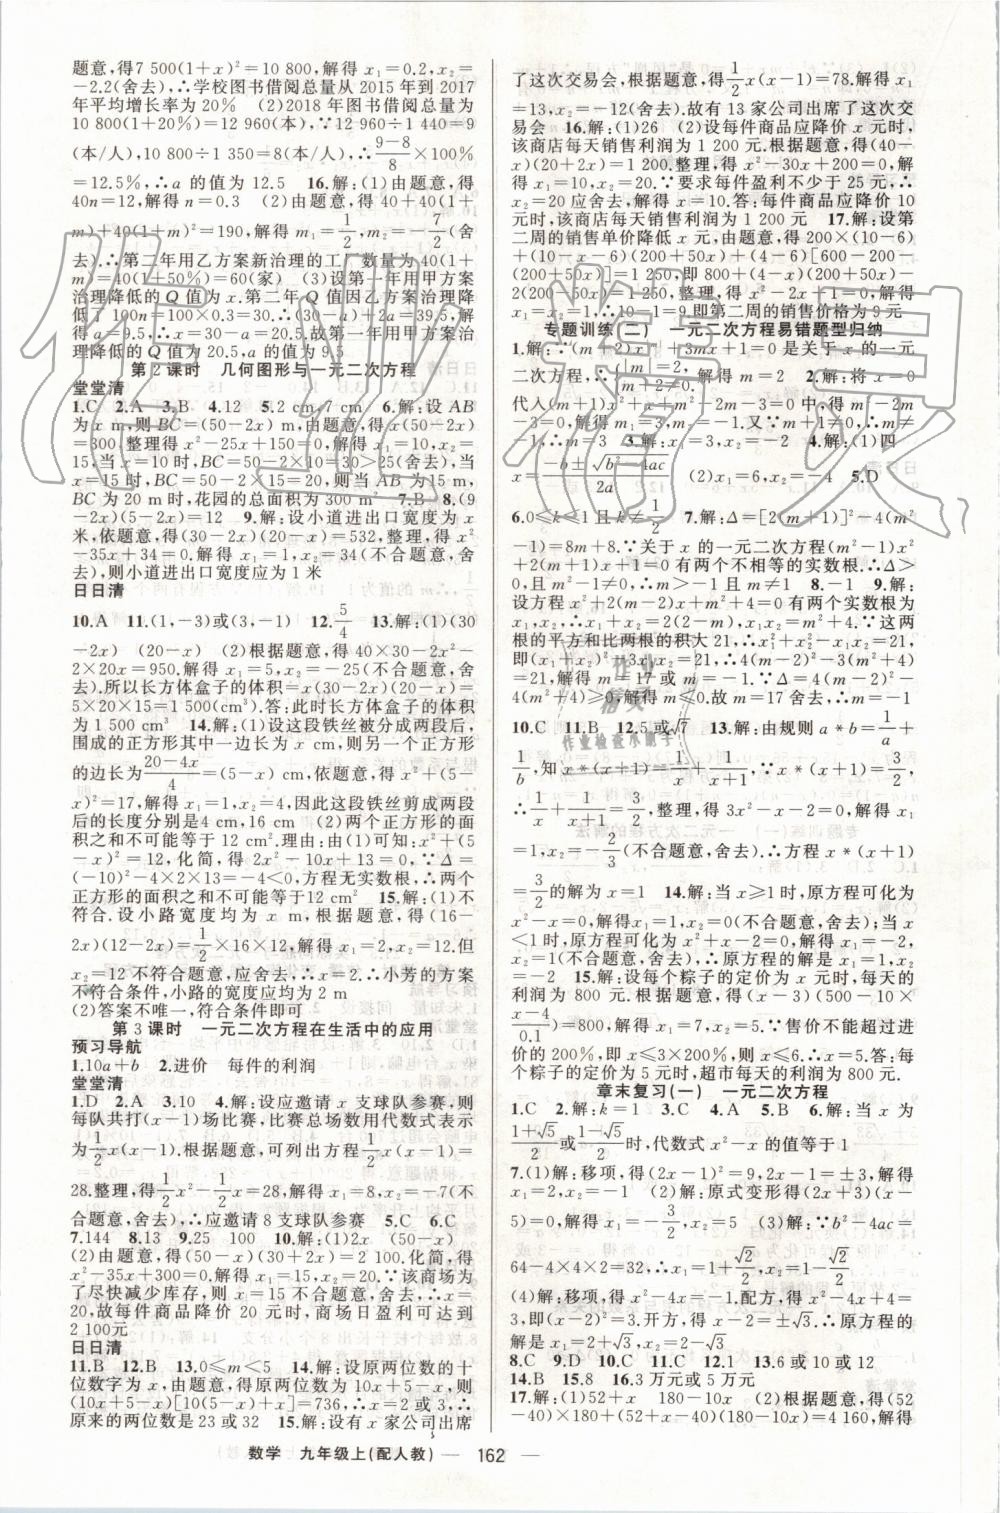 题意,得7 500(1+x)²=10 800,解得 x₁=0.2,x₂=
-2.2(舍去),∴学校图书借阅总量从 2015 年到 2017
年平均增长率为 20%　(2)2018 年图书借阅总量为
10 800(1+20%)=12 960(本),∵12 960÷1 440=9
(本/人),10 800÷1 350=8(本/人),(9-8)/8×100%
=12.5%,∴a 的值为 12.5　16.解:(1)由题意,得
40n=12,解得 n=0.3　(2)由题意,得 40+40(1+
m)+40(1+m)²=190,解得 m₁=1/2,m₂=-7/2(舍
去),∴第二年用乙方案新治理的工厂数量为 40(1+
m)=40(1+50%)=60(家)　(3)设第一年用甲方案
治理降低的 Q 值为 x.第二年 Q值因乙方案治理降
低了 100n=100×0.3=30,∴(30-a)+2a=39.5,解
得 a=9.5,∴x=30-a=20.5.故第一年用甲方案治
理降低的 Q 值为 20.5,a 的值为 9.5
第 2 课时　几何图形与一元二次方程
堂堂清
1.C　2.A　3.B　4.12　5.2 cm,7 cm　6.解:设 AB
为 x m,则 BC=(50-2x) m,由题意,得 x(50-2x)
=300,整理得 x²-25x+150=0,解得 x₁=10,x₂=
15,当 x=10 时,BC=50-2×10=30>25(舍去),当
x=15 时,BC=50-2×15=20,∴当 AB 为 15 m,
BC 为 20 m 时,花园的总面积为 300 m²　7.B　8.(9
-2x)(5-2x)=12　9.解:设小道进出口宽度为 x
米,依题意,得(30-2x)(20-x)=532,整理,得 x²
-35x+34=0.解得 x₁=1,x₂=34(不合题意,舍
去),则小道进出口宽度应为 1 米
日日清
10.A　11.(1,-3)或(3,-1)　12.5/4　13.解:(1)(30
-2x)　(20-x)　(2)根据题意,得 40×30-2x²
-2×20x=950,解得 x₁=5,x₂=-25(不合题意,舍
去).所以长方体盒子的体积=x(30-2x)(20-x)=
5×20×15=1 500(cm³).答:此时长方体盒子的体积
为 1 500 cm³　14.解:(1)设这段铁丝被分成两段后,
围成的正方形其中一边长为 x cm,则另一个正方形
的边长为(20-4x)/4=(5-x) cm,依题意,得 x²+(5-
x)²=17,解得 x₁=1,x₂=4,因此这段铁丝剪成两段
后的长度分别是4 cm,16 cm　(2)两个正方形的面积
之和不可能等于 12 cm².理由:由(1)可知:x²+(5-
x)²=12,化简,得 2x²-10x+13=0,∵Δ=
(-10)²-4×2×13=-4<0,方程无实数根,∴两个
正方形的面积之和不可能等于 12 cm²　15.解:(1)不
符合.设小路宽度均为 x m,根据题意,得(16-
2x)(12-2x)=1/2×16×12,解得x₁=2,x₂=12.但
x₂=12 不符合题意,应舍去,∴x=2.∴小芳的方案
不符合条件,小路的宽度应均为 2 m
(2)答案不唯一,符合条件即可
第 3 课时　一元二次方程在生活中的应用
预习导航
1.10a+b　2.进价　每件的利润
堂堂清
1.D　2.A　3.10　4.解:设应邀请 x 支球队参赛,则
每队共打(x-1)场比赛,比赛总场数用代数式表示
为1/2x(x-1).根据题意,可列出方程1/2x(x-1)=
28.整理,得1/2x²-1/2x=28,解得 x₁=8,x₂=-7(不
合题意,舍去),∴应邀请 8 支球队参赛　5.C　6.C
7.144　8.13　9.25　100　10.解:(1)(50-x)　(30+2x)
(2)由题意,得(50-x)(30+2x)=2 100,化简,得
x²-35x+300=0,解得x₁=15,x₂=20,∵该商场为
了尽快减少库存,则 x=15 不合题意,舍去,∴x=
20,故每件商品降价 20 元时,商场日盈利可达到
2 100元
日日清
11.B　12.B　13.0≤m<5　14.解:设原两位数的十
位数字为 x,由题意,得原来的两位数为10x+5+x,则
[10x+(5-x)][10(5-x)+x]=736,∴x=2或x=3,∴
原来的两位数是 23 或 32　15.解:设有 x 家公司出席
了这次交易会,根据题意,得1/2x(x-1)=78.解得 x₁
=13,x₂=-12(舍去).故有 13 家公司出席了这次交
易会　16.解:(1)26　(2)设每件商品应降价 x 元时,
该商店每天销售利润为 1 200 元.根据题意,得(40-
x)(20+2x)=1 200.整理,得 x²-30x+200=0.解
得 x₁=10,x₂=20.∵要求每件盈利不少于 25 元,∴
x₂=20 应舍去,解得 x=10.答:每件商品应降价 10
元时,该商店每天销售利润为 1 200 元　17.解:设第
二周的销售单价降低 x 元,由题意,得 200×(10-6)
+(10-x-6)(200+50x)+(4-6)[600-200-
(200+50x)]=1 250,即 800+(4-x)(200+50x)-
2(200-50x)=1 250,整理,得 x²-2x+1=0,解得
x₁=x₂=1,∴10-1=9,即第二周的销售价格为 9 元
专题训练(二)　一元二次方程易错题型归纳
1.解:∵(m+2)x^|m|+3mx+1=0是关于 x 的一元
二次方程,∴{|m|=2, m+2≠0.解得 m=2　2.解:将 x=0
代入(m+1)x²+x+m²-2m-3=0 中,得 m²-2m
-3=0,解得 m₁=3,m₂=-1.又∵m+1≠0,∴m≠
-1,∴m=3　3.解:x₁=3,x₂=-2　4.解:(1)四
x=(-b±√(b²-4ac))/2a　(2)x₁=6,x₂=-4　5.D
6.0≤k≤1 且 k≠1/2　7.解:Δ=[2(m+1)]²-4(m²
-1)=8m+8.∵关于 x 的一元二次方程(m²-1)x²
+2(m+1)x+1=0 有两个不相等的实数根.∴Δ>
0,且m²-1≠0,∴m>-1,且m≠1　8.-1　9.解:
设方程 x²+2(m-2)x+m²+4=0 有两个实数根为
x₁,x₂,∴x₁+x₂=2(2-m),x₁x₂=m²+4,∵这两
根的平方和比两根的积大 21,∴x₁²+x₂²-x₁x₂=21,
即(x₁+x₂)²-3x₁x₂=21,∴4(m-2)²-3(m²+4)
=21,解得 m=17 或 m=-1.∵Δ=4(m-2)²-
4(m²+4)≥0,解得 m≤0.故 m=17 舍去,∴m=-1
10.C　11.B　12.5或√7　13.解:由规则 a*b=1/a+
1/b,知x*(x+1)=1/x+1/(x+1),∵x*(x+1)=3/2,
∴1/x+1/(x+1)=3/2,整理,得 3x²-x-2=0,解得 x₁
=1,x₂=-2/3(不合题意,舍去).∴方程 x*(x+1)
=3/2的解为 x=1　14.解:当 x≥1 时,原方程可化为
x²-x=0,解得x₁=1,x₂=0(不合题意,舍去);当 x
<1 时,原方程可化为 x²+x-2=0,解得x₁=-2,
x₂=1(不合题意,舍去),∴原方程的解为 x₁=1,x₂=
-2　15.解:设每个粽子的定价为 x 元时,每天的
利润为 800 元.根据题意,得(x-3)(500-10×
(x-4)/0.1)=800,解得x₁=7,x₂=5.∵售价不能超过进
价的 200%,即 x≤3×200%,即 x≤6.∴x=5.答:每
个粽子的定价为 5 元时,超市每天的利润为 800 元.
章末复习(一)　一元二次方程
1.C　2.解:k=1　3.C　4.A　5.B　6.解:当 x 为
(1+√5)/2或(1-√5)/2时,代数式 x²-x 的值等于 1
7.(1)解:移项,得(2x-1)²=9,2x-1=±3,解得
x₁=2,x₂=-1　(2)解:原式变形得(2x+3)(x-
5)=0,解得x₁=-3/2,x₂=5　(3)解:∵b²-4ac=
64-4×4×2=32,∴x₁=1+√2/2,x₂=1-√2/2
(4)解:移项,得 x²-4x=-1,配方,得 x²-4x+4=
3,即(x-2)²=3.开方,得 x-2=±√3,∴原方程的
解是 x₁=2+√3,x₂=2-√3
8.C　9.D　10.C　11.C　12.1　13.6或 10或 12
14.B　15.8　16.3 万元或 5 万元
17.解:(1)52+x　180-10x　(2)根据题意,得(52
-40+x)(180-10x)=2 160,解得
数学　九年级上(配人教)　— 162 —
作业
精灵
作业检查小助手